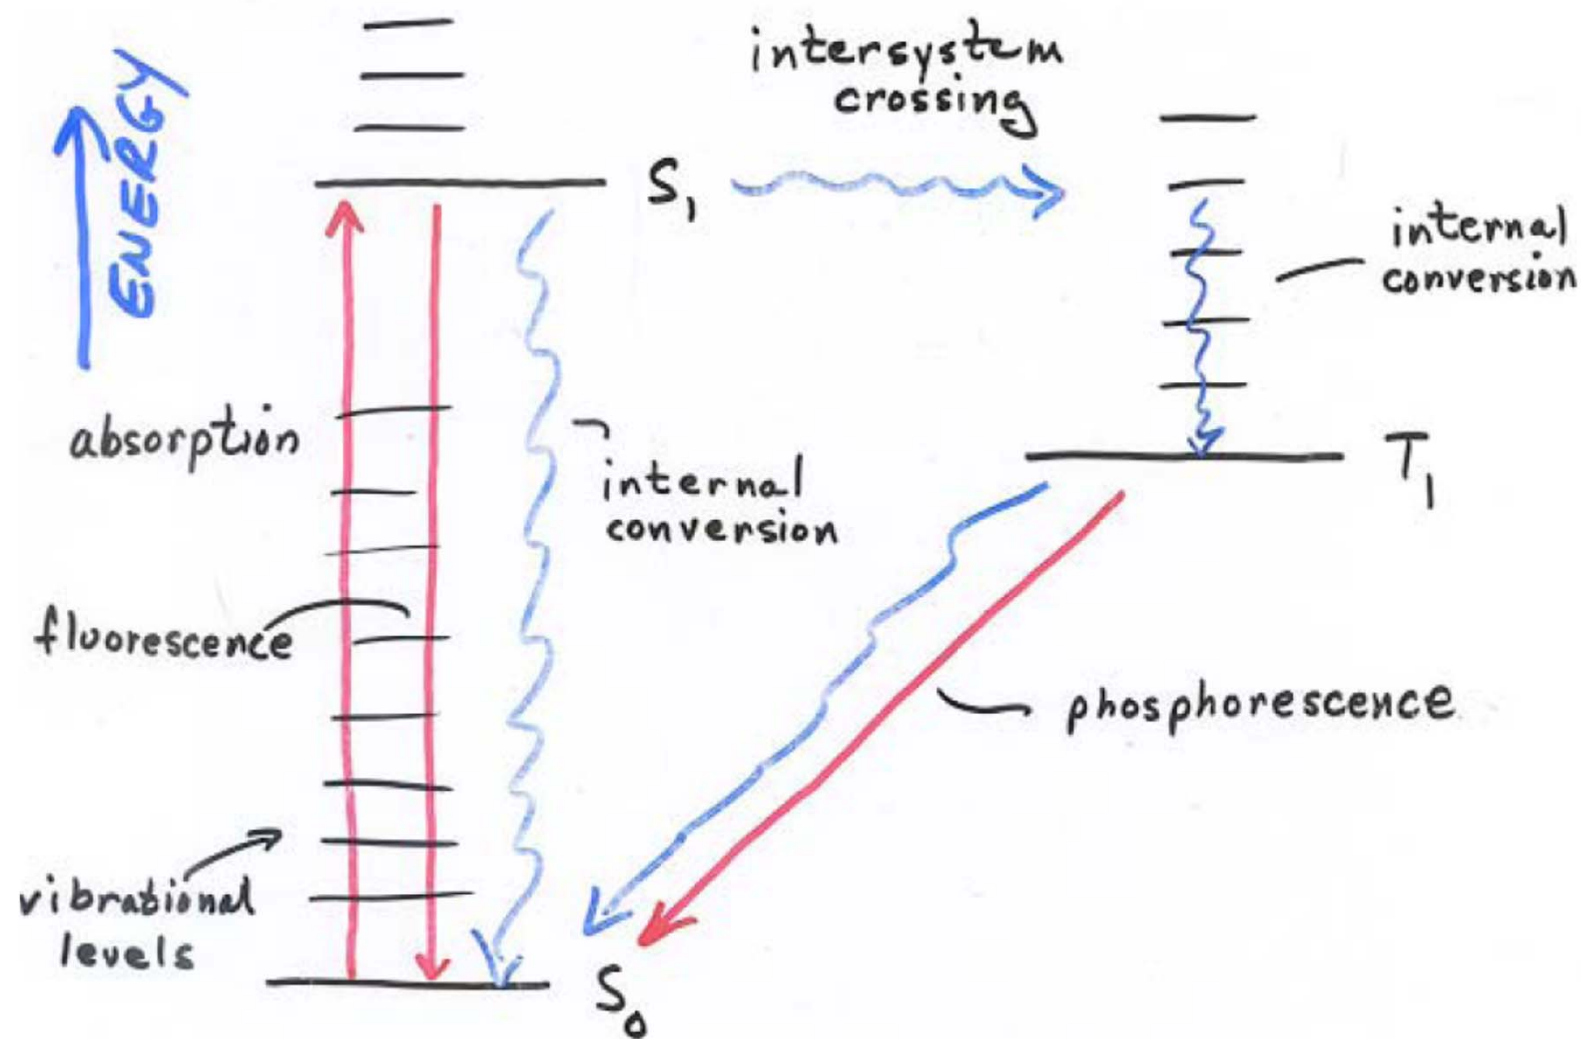 ENERGY
intersystem
crossing
S₁
internal
conversion
absorption
T₁
internal
conversion
fluorescence
phosphorescence
vibrational
levels
S₀